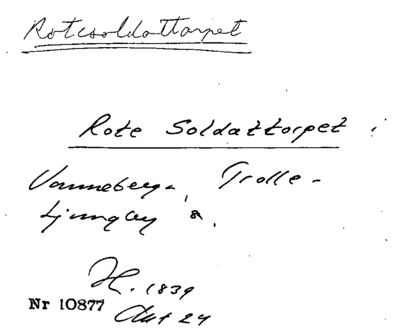 Rotesoldattorpet
Rote Soldattorpet i
Vanneberga, Trolle-
Ljungby s.
H. 1839
Nr 10877
Akt 24